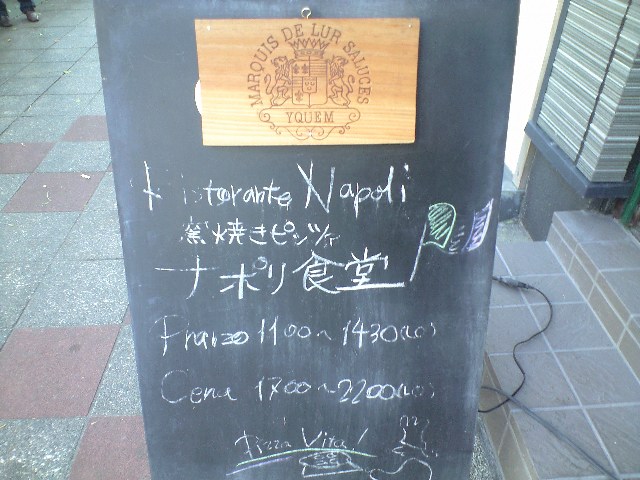 MARQUIS DE LUR SALUCES
YQUEM
Ristorante Napoli
窯焼きピッツァ
ナポリ食堂
Pranzo 1100~1430(LO)
Cena 1700~2200(LO)
Pizza Vita!